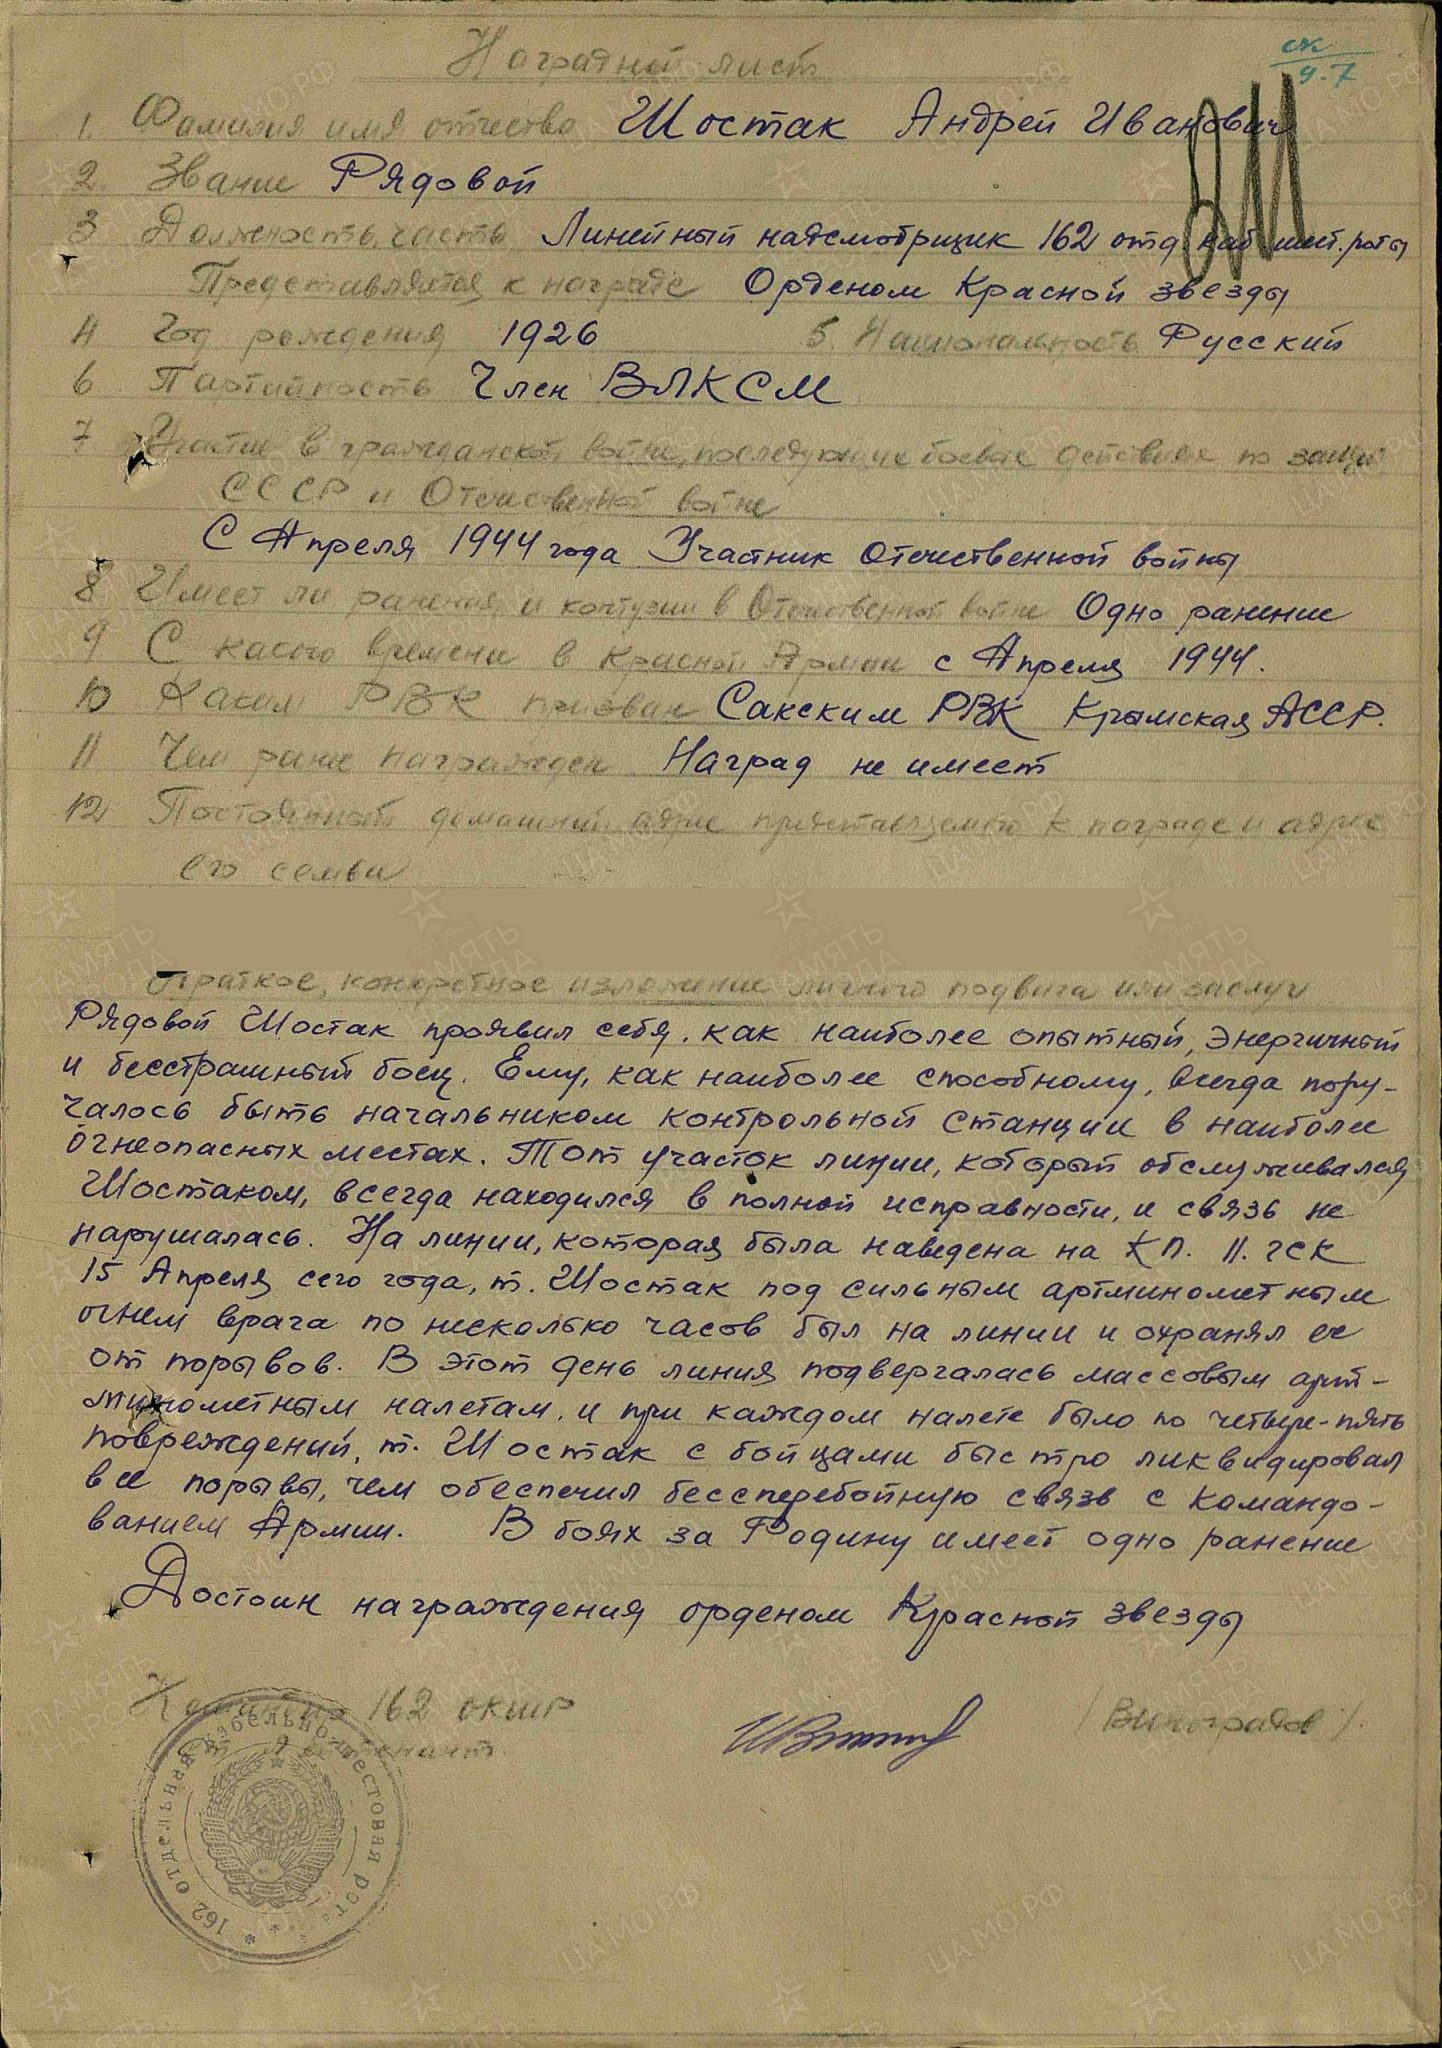 ск
9.7
Наградной лист
1. Фамилия имя отчество Шостак Андрей Иванович
2. Звание Рядовой
3 Должность, часть Линейный надсмотрщик 162 отд. каб. шест. роты
Представляется к награде Орденом Красной звезды
4 Год рождения 1926 5. Национальность Русский
6 Партийность Член ВЛКСМ
7 Участие в гражданской войне, последующих боевых действиях по защите
СССР и Отечественной войне
С Апреля 1944 года Участник Отечественной войны
8 Имеет ли ранения и контузии в Отечественной войне Одно ранение
9 С какого времени в Красной Армии с Апреля 1944.
10 Каким РВК призван Сакским РВК Крымская АССР.
11 Чем ранее награжден Наград не имеет
12 Постоянный домашний адрес представляемого к награде и адрес
его семьи
Краткое, конкретное изложение личного подвига или заслуг
Рядовой Шостак проявил себя, как наиболее опытный, энергичный
и бесстрашный боец. Ему, как наиболее способному, всегда пору-
чалось быть начальником контрольной станции в наиболее
огнеопасных местах. Тот участок линии, который обслуживался
Шостаком, всегда находился в полной исправности, и связь не
нарушалась. На линии, которая была наведена на КП. 11. гск
15 Апреля сего года, т. Шостак под сильным артминометным
огнем врага по несколько часов был на линии и охранял ее
от порывов. В этот день линия подвергалась массовым арт-
минометным налетам, и при каждом налете было по четыре-пять
повреждений, т. Шостак с бойцами быстро ликвидировал
все порывы, чем обеспечил бессперебойную связь с командо-
ванием Армии. В боях за Родину имеет одно ранение
Достоин награждения орденом Красной звезды
Командир 162 окшр
ст. лейтенант
/Виноградов/.
162 отдельная кабельно-шестовая рота